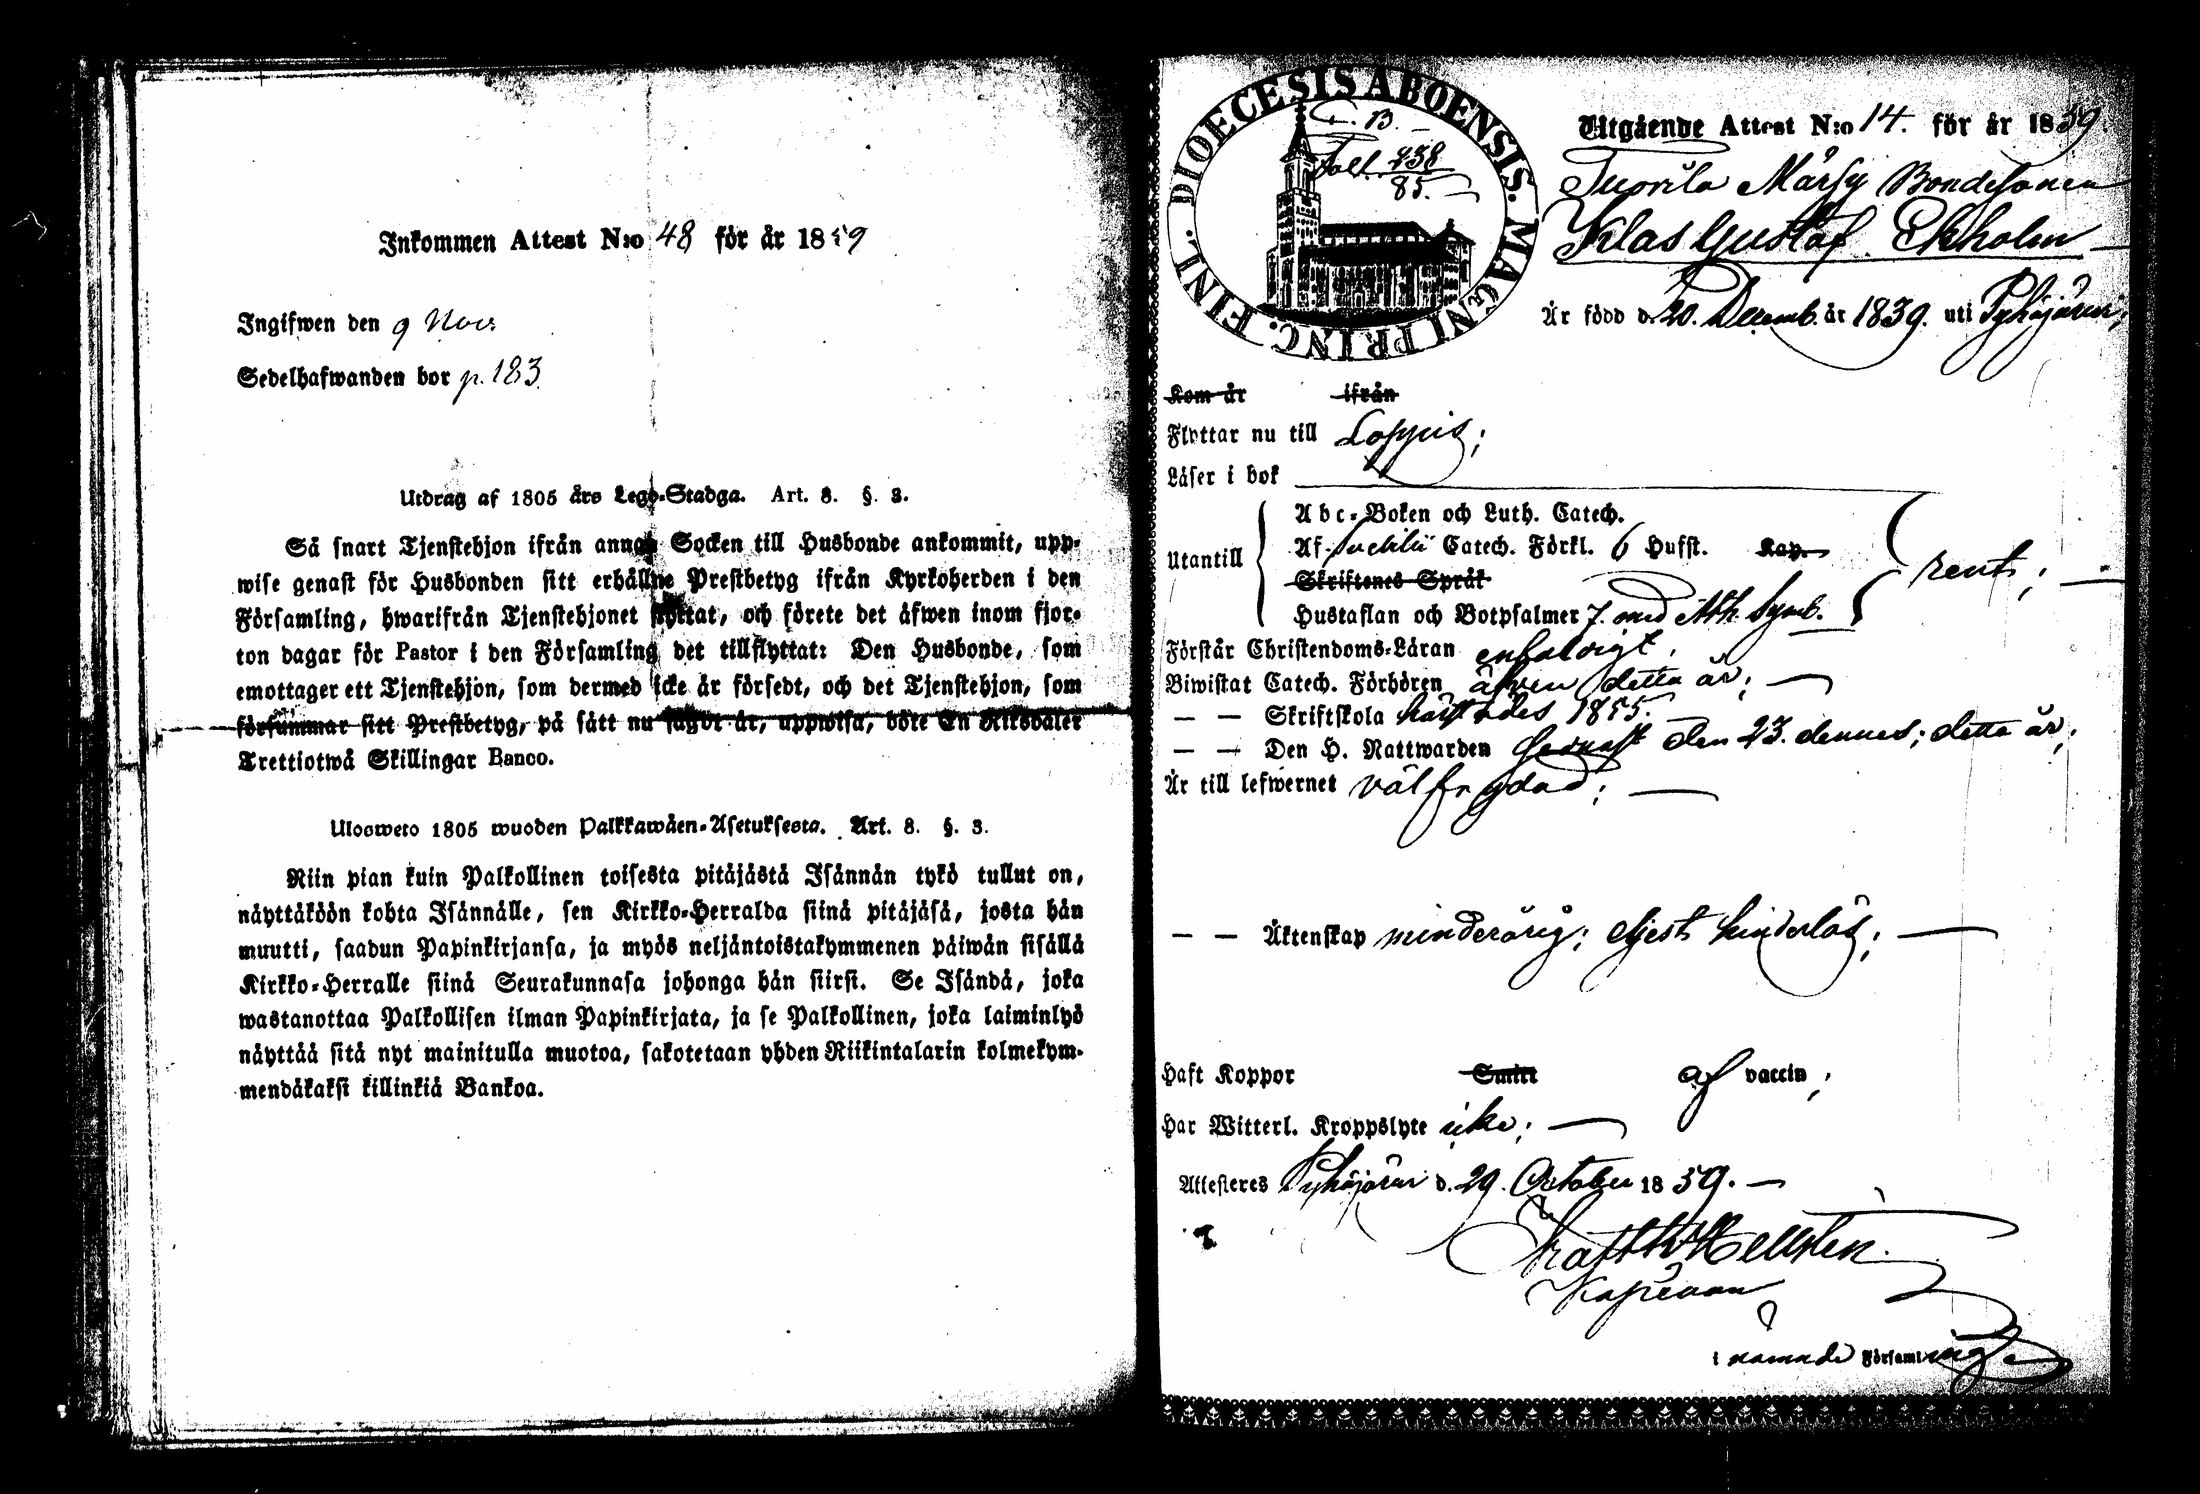 Inkommen Attest N:o 48 för år 1859
Ingifwen den 9 Nov.
Sedelhafwanden bor p. 183.
Utdrag af 1805 års Lego-Stadga. Art. 8. §. 3.
Så snart Tjenstehjon ifrån annan Socken till Husbonde ankommit, upp-
wise genast för Husbonden sitt erhållne Prestbetyg ifrån Kyrkoherden i den
Församling, hwarifrån Tjenstehjonet flyttat, och förete det äfwen inom fjor-
ton dagar för Pastor i den Församling det tillflyttat: Den Husbonde, som
emottager ett Tjenstehjon, som dermed icke är försedt, och det Tjenstehjon, som
försummar sitt Prestbetyg, på sått nu sagdt är, uppwisa, böte En Riksdaler
Trettiotwå Skillingar Banco.
Ulosweto 1805 wuoden Palkkawäen-Asetuksesta. Art. 8. §. 3.
Niin pian kuin Palkollinen toisesta pitäjästä Isännän tykö tullut on,
näyttäköön kohta Isännälle, sen Kirkko-Herralda siinä pitäjäsä, josta hän
muutti, saadun Papinkirjansa, ja myös neljäntoistakymmenen päiwän sisällä
Kirkko-Herralle siinä Seurakunnasa johonga hän siirsi. Se Isändä, joka
wastanottaa Palkollisen ilman Papinkirjata, ja se Palkollinen, joka laiminlyö
näyttää sitä nyt mainitulla muotoa, sakotetaan yhden Riikintalarin kolmekym-
mendäkaksi killinkiä Bankoa.
DIOECESIS ABOENSIS. MAGNI PRINC. FINL.
L. B.
Foll. 238
85.
Utgående Attest N:o 14. för år 1859.
Tuorila Märsy Bondesonen
Klas Gustaf Ekholm
Är född d. 20. Decemb. år 1839. uti Pyhäjärvi;
Kom år ifrån
Flyttar nu till Loppis;
Läser i bok
Utantill
Abc-Boken och Luth. Catech.
Af Svebilii Catech. Förkl. 6 Hufst. Kap.
Skriftenes Språk
Hustaflan och Botpsalmer 7. med Ath. Symb.
rent;
Förstår Christendoms-Läran enfaldigt.
Biwistat Catech. Förhören äfven detta år;
— — Skriftskola 1855.
— — Den H. Nattwarden senast den 23. dennes; detta år;
Är till lefwernet välfrejdad;
— — Äktenskap minderårig; hinderlös;
Haft Koppor Smitt af vaccin;
Har Witterl. Kroppslyte icke;
Attesteres Pyhäjärvi d. 29. October 1859.
Hellsten.
Kapellan
i nämnde Församling